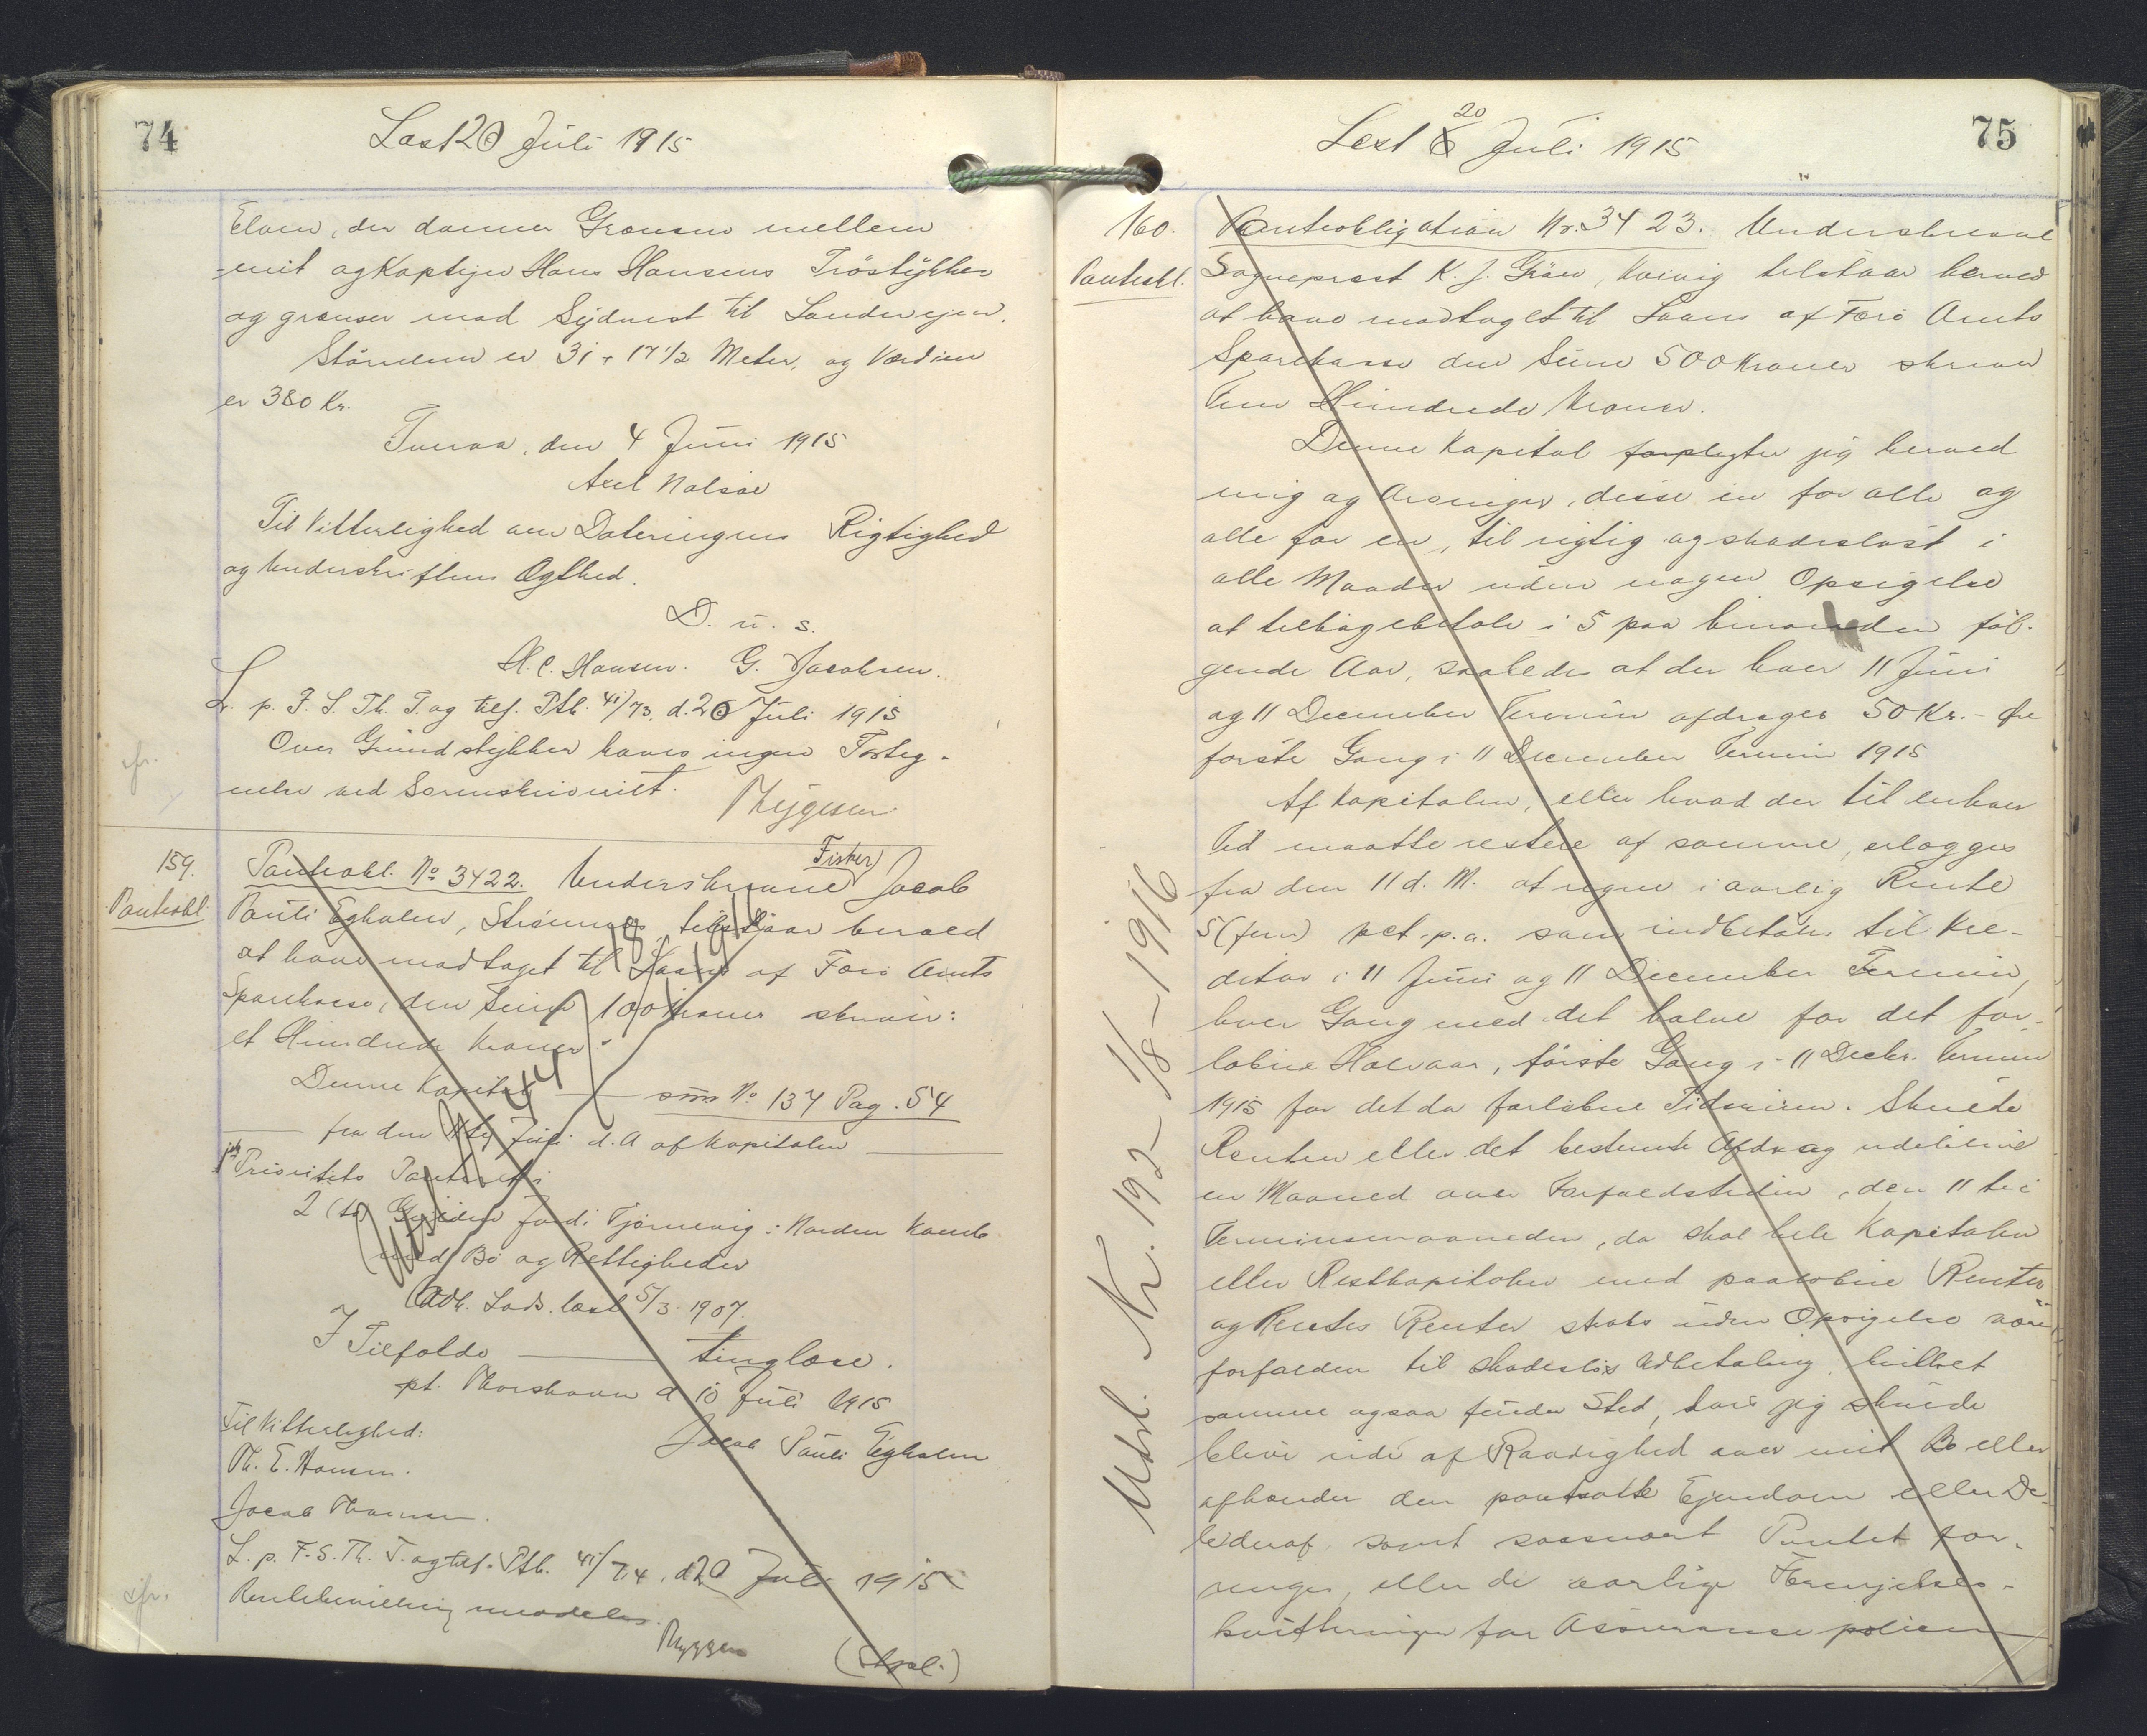 74
Læst 20 Juli 1915
Elven, der danner Grænsen mellem
mit og Kaptejn Hans Hansens Tröstykker
og grænser mod Sydvest til Landevejen.
Störrelsen er 31 x 17 1/2 Meter, og Værdien
er 380 Kr.
Tveraa, den 4 Juni 1915
Axel Nolsöe
Til Vitterlighed om Dateringens Rigtighed
og Underskriftens Ægthed.
D. u. s.
H. C. Hansen. G. Jacobsen.
L. p. F. S. Th. T. og tilf. Ptb. 41/73, d. 20 Juli 1915
Over Grundstykker haves ingen Forteg-
nelse ved Sorenskriveriet.
Thygesen
159.
Panteobl.
Panteobl. No 3422. Underskrevne Fisker Jacob
Pauli Egholm, Strömnæs, tilstaar herved
at have modtaget til Laans af Færö Amts
Sparekasse, den Sum 100 Kroner skriver:
et Hundrede Kroner.
Denne Kapital — sms No 137 Pag. 54
— fra den 11te Juli d. A af Kapitalen —
1ste Prioritets Panteret i
2 (to) Gylden Jord i Tjörnevig: Norden Kamb
med Bö og Rettigheder
Adk. Lods. læst 5/3-1907.
I Tilfælde — tinglæse.
pt. Thorshavn d 10 Juli 1915
Til Vitterlighed:
Jacob Pauli Egholm
Th. E. Hansen.
Jacob Thomsen.
L. p. F. S. Th. T. og tilf. Ptb. 41/74, d. 20 Juli 1915
Rentebevilling meddeles.
Thygesen
75
Læst 20 Juli 1915
160.
Panteobl.
Panteobligation Nr. 3423. Underskrevne
Sognepræst K. J. Grön, Kvivig tilstaar herved
at have modtaget til Laans af Færö Amts
Sparekasse den Sum 500 Kroner skriver
Fem Hundrede Kroner.
Denne Kapital forpligter jeg herved
mig og Arvinger, disse en for alle og
alle for en, til rigtig og skadeslöst i
alle Maader uden nogen Opsigelse
at tilbagebetale i 5 paa hinanden föl-
gende Aar, saaledes at der hver 11 Juni
og 11 December Termin afdrages 50 Kr.-
förste Gang i 11 December Termin 1915
Af Kapitalen, eller hvad der til enhver
Tid maatte restere af samme, erlægges
fra den 11 d. M. at regne i aarlig Rente
5 (fem) pct. p. a. som indbetales til Kre-
ditor i 11 Juni og 11 December Termin,
hver Gang med det halve for det for-
löbne Halvaar, förste Gang i 11 Decbr. Termin
1915 for det da forlöbne Tidsrum. Skulde
Renten eller det bestemte Afdrag udeblive
en Maaned over Forfaldstiden, den 11te i
Terminsmaaneden, da skal hele Kapitalen
eller Restkapitalen med paalöbne Renter
og Rentes Renter straks uden Opsigelse være
forfalden til skadeslös Udbetaling, hvilket
samme ogsaa finder Sted, hvis jeg skulde
blive ude af Raadighed over mit Bo eller
afhænder den pantsatte Ejendom eller De-
le deraf, samt saasnart Pantet for-
ringes, eller de aarlige Fornyelses-
kvitteringer for Assurancepolicen
Udsl. Nr. 192 - 1/8 - 1916